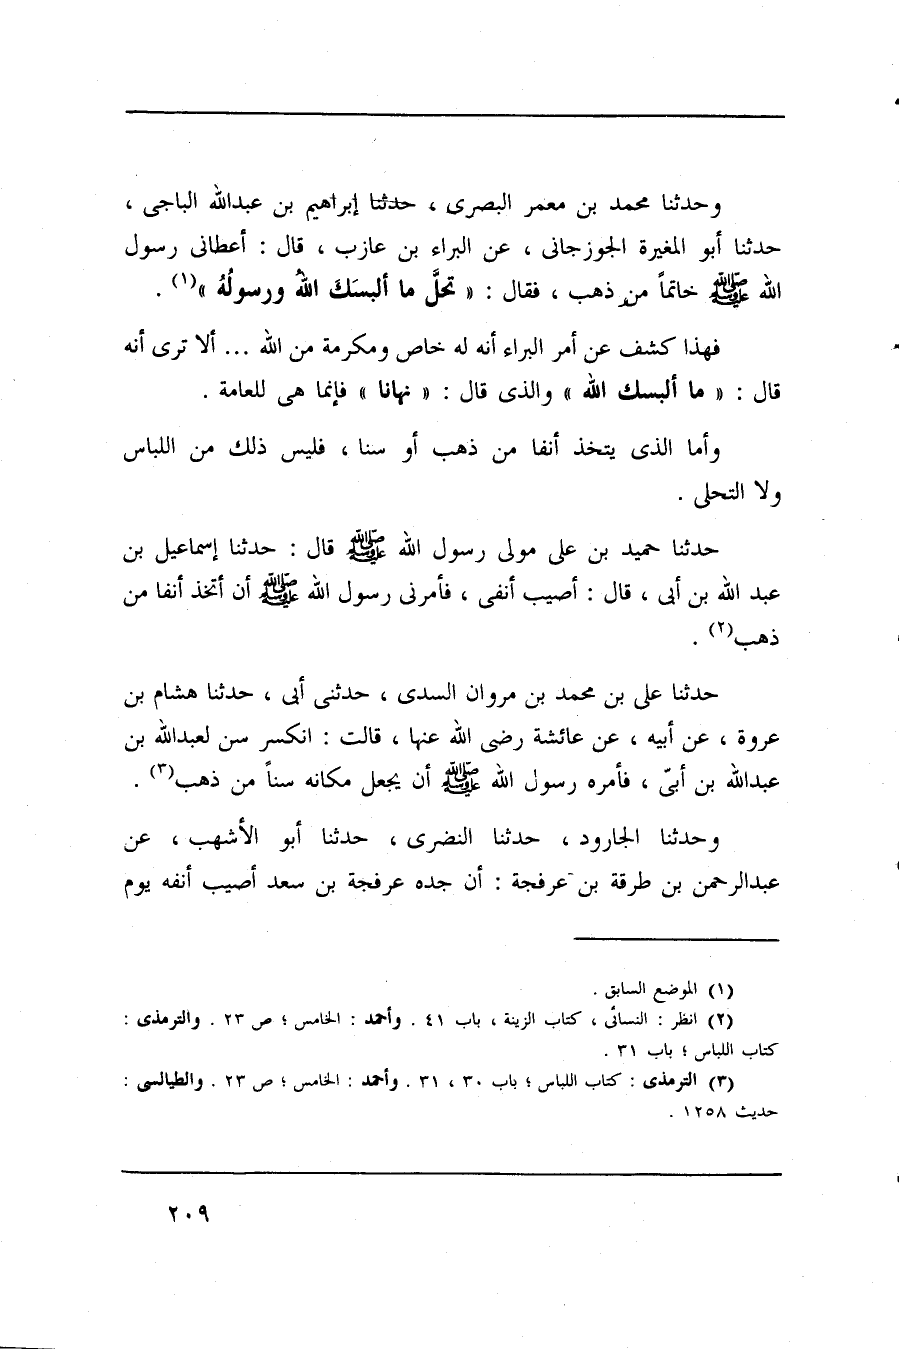 وحدثنا محمد بن معمر البصرى ، حدثنا إبراهيم بن عبدالله الباجى ،
حدثنا أبو المغيرة الجوزجانى ، عن البراء بن عازب ، قال : أعطانى رسول
الله ﷺ خاتماً من ذهب ، فقال : « تحلَّ ما ألبسَكَ اللهُ ورسولُهُ »(١) .
فهذا كشف عن أمر البراء أنه له خاص ومكرمة من الله ... ألا ترى أنه
قال : « ما ألبسك الله » والذى قال : « نهانا » فإنما هى للعامة .
وأما الذى يتخذ أنفا من ذهب أو سنا ، فليس ذلك من اللباس
ولا التحلى .
حدثنا حميد بن على مولى رسول الله ﷺ قال : حدثنا إسماعيل بن
عبد الله بن أبى ، قال : أصيب أنفى ، فأمرنى رسول الله ﷺ أن أتخذ أنفا من
ذهب(٢) .
حدثنا على بن محمد بن مروان السدى ، حدثنى أبى ، حدثنا هشام بن
عروة ، عن أبيه ، عن عائشة رضى الله عنها ، قالت : انكسر سن لعبدالله بن
عبدالله بن أبىّ ، فأمره رسول الله ﷺ أن يجعل مكانه سناً من ذهب(٣) .
وحدثنا الجارود ، حدثنا النضرى ، حدثنا أبو الأشهب ، عن
عبدالرحمن بن طرقة بن عرفجة : أن جده عرفجة بن سعد أصيب أنفه يوم
(١) الموضع السابق .
(٢) انظر : النسائى ، كتاب الزينة ، باب ٤١ . وأحمد : الخامس ؛ ص ٢٣ . والترمذى :
كتاب اللباس ؛ باب ٣١ .
(٣) الترمذى : كتاب اللباس ؛ باب ٣٠ ، ٣١ . وأحمد : الخامس ؛ ص ٢٣ . والطيالسى :
حديث ١٢٥٨ .
٢٠٩